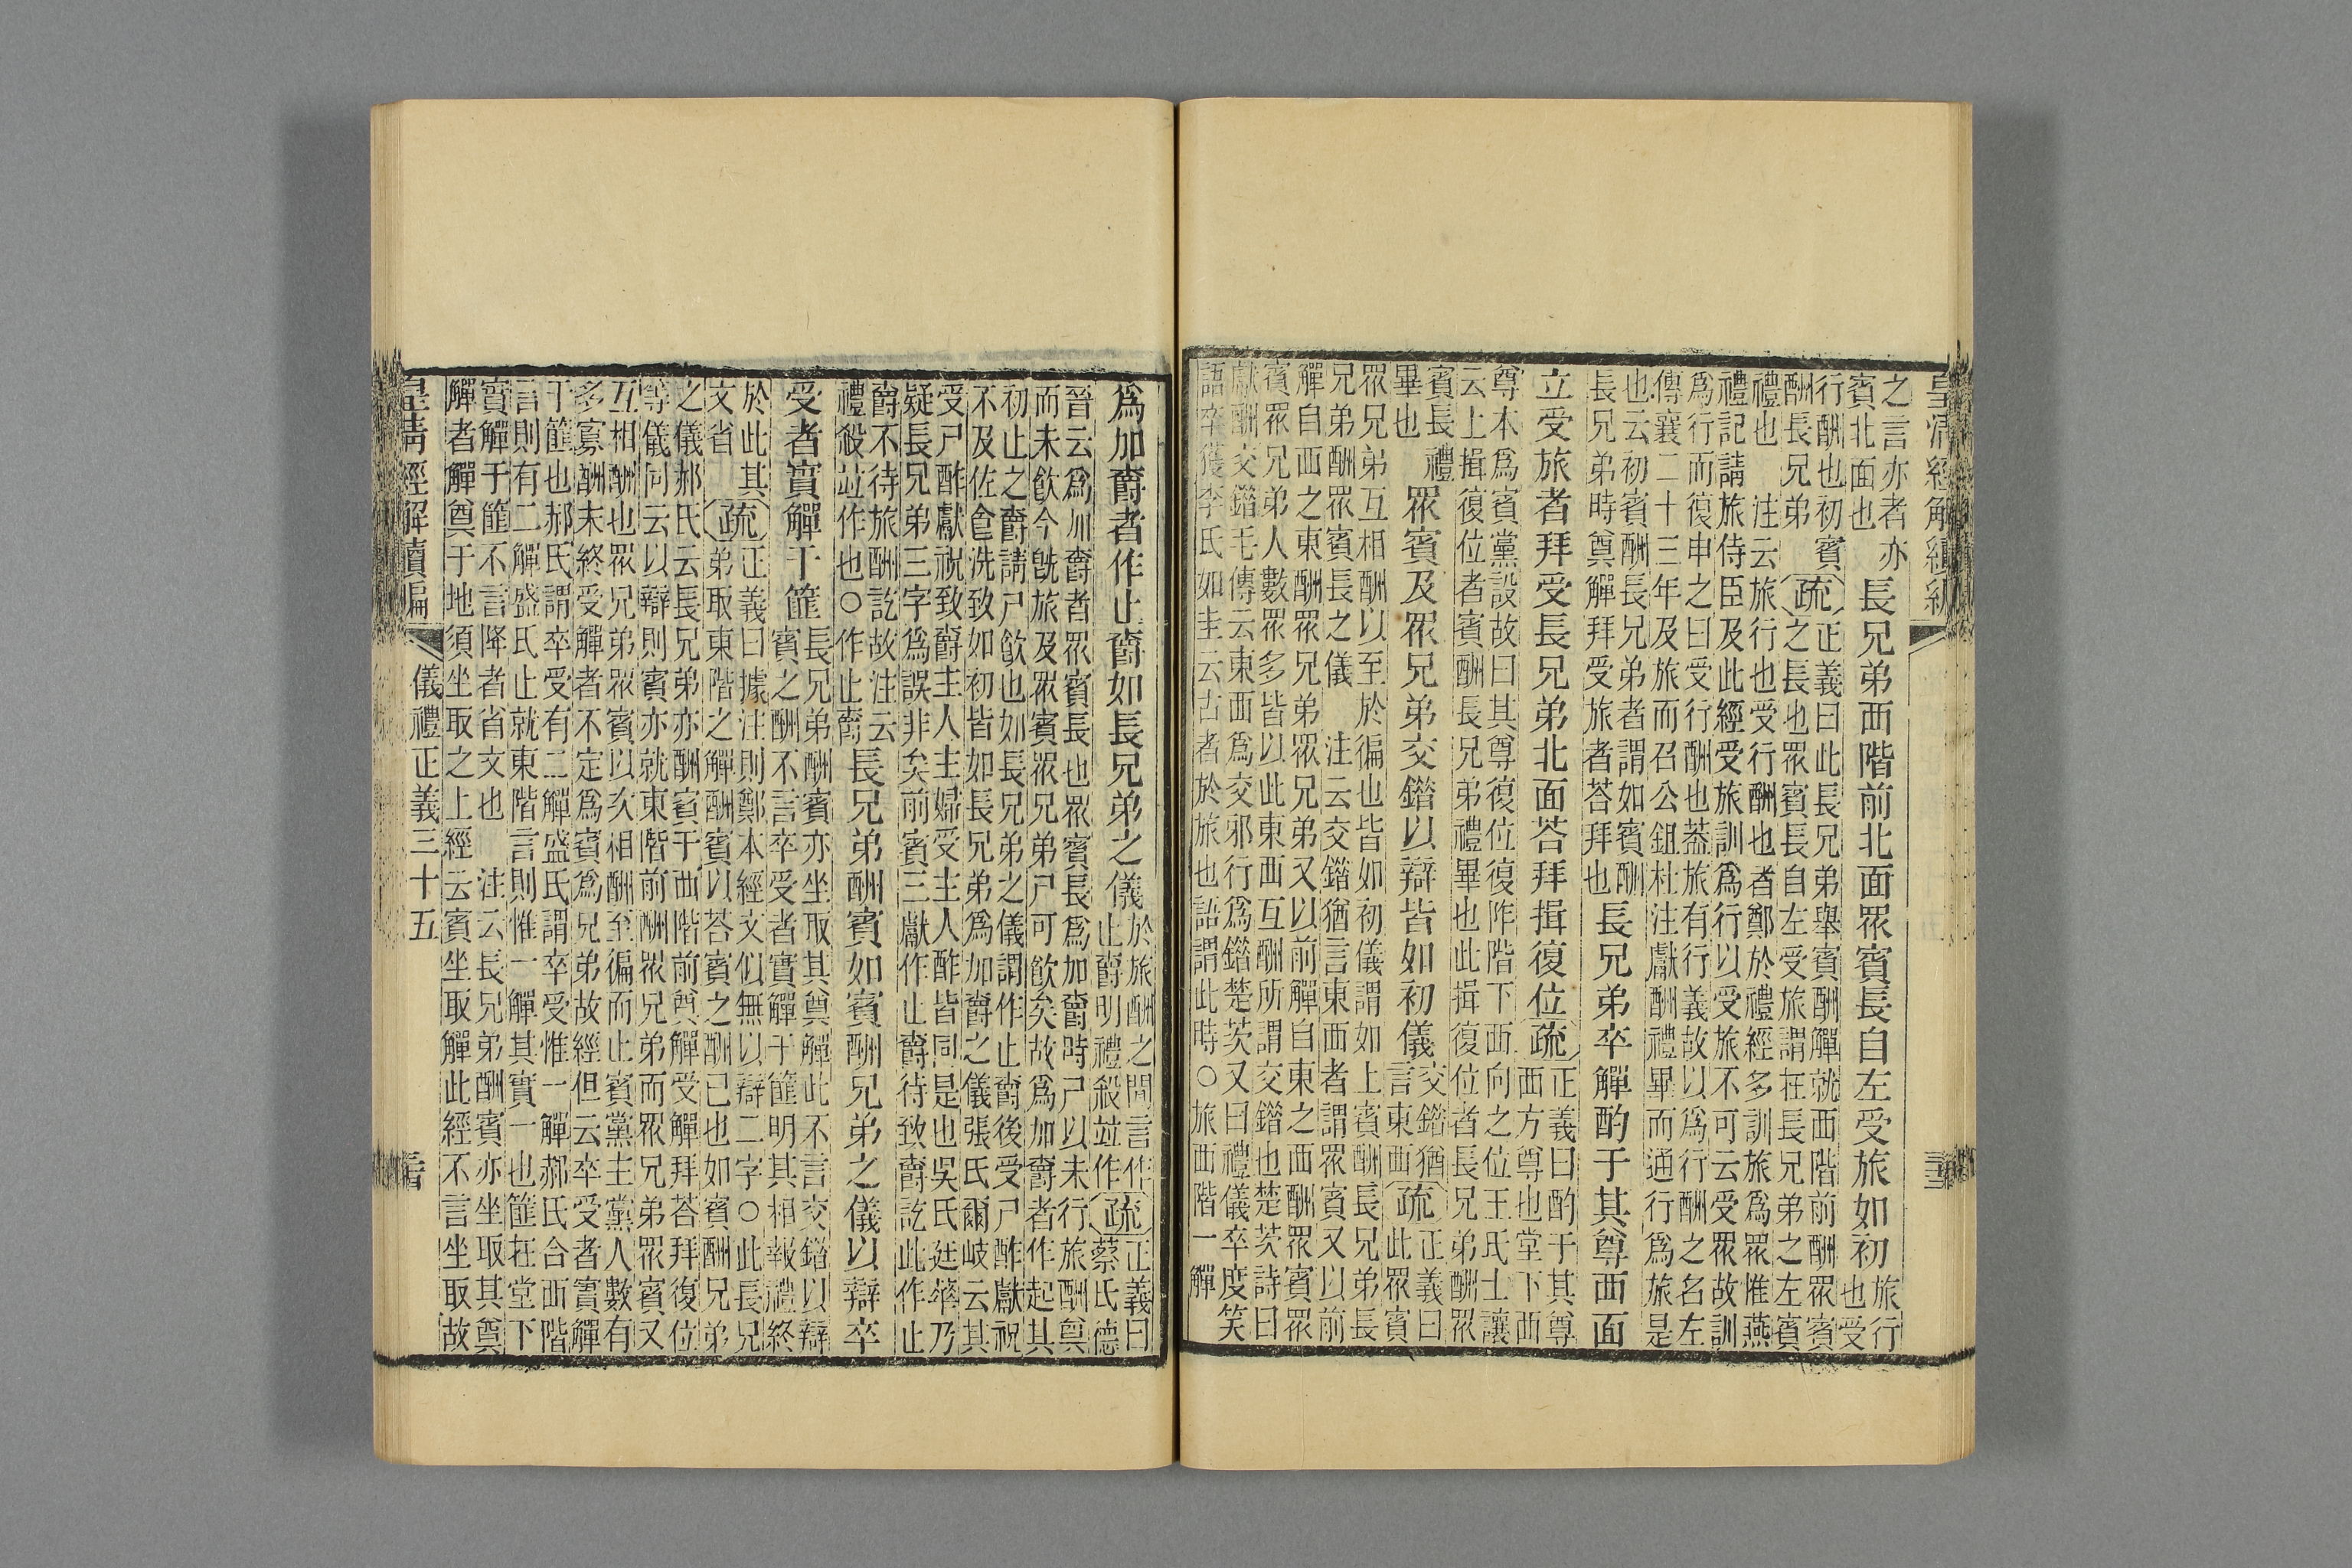 皇清經解續編
之言亦者亦
賓北面也
長兄弟西階前北面眾賓長自左受旅如初
旅行
也受
行酬也初賓
酬長兄弟
疏
正義曰此長兄弟舉賓酬觶就西階前酬眾賓
之長也眾賓長自左受旅謂在長兄弟之左賓
禮也　注云旅行也受行酬也者鄭於禮經多訓旅為眾惟燕
禮記請旅侍臣及此經受旅訓為行以受旅不可云受眾故訓
為行而復申之曰受行酬也葢旅有行義故以為行酬之名左
傳襄二十三年及旅而召公鉏杜注獻酬禮畢而通行為旅是
也云初賓酬長兄弟者謂如賓酬
長兄弟時奠觶拜受旅者荅拜也
長兄弟卒觶酌于其尊西面
立受旅者拜受長兄弟北面荅拜揖復位
疏
正義曰酌于其尊
西方尊也堂下西
尊本為賓黨設故曰其尊復位復阼階下西向之位王氏士讓
云上揖復位者賓酬長兄弟禮畢也此揖復位者長兄弟酬眾
賓長禮
畢也
眾賓及眾兄弟交錯以辯皆如初儀
交錯猶
言東西
疏
正義曰
此眾賓
眾兄弟互相酬以至於徧也皆如初儀謂如上賓酬長兄弟長
兄弟酬眾賓長之儀　注云交錯猶言東西者謂眾賓又以前
觶自西之東酬眾兄弟眾兄弟又以前觶自東之西酬眾賓眾
賓眾兄弟人數眾多皆以此東西互酬所謂交錯也楚茨詩曰
獻酬交錯毛傳云東西為交邪行為錯楚茨又曰禮儀卒度笑
語卒獲李氏如圭云古者於旅也語謂此時○旅西階一觶
為加爵者作止爵如長兄弟之儀
於旅酬之間言作
止爵明禮殺竝作
疏
正義曰
蔡氏德
晉云為加爵者眾賓長也眾賓長為加爵時尸以未行旅酬奠
而未飲今旣旅及眾賓眾兄弟尸可飲矣故為加爵者作起其
初止之爵請尸飲也如長兄弟之儀謂作止爵後受尸酢獻祝
不及佐食洗致如初皆如長兄弟為加爵之儀張氏爾岐云其
受尸酢獻祝致爵主人主婦受主人酢皆同是也吳氏廷華乃
疑長兄弟三字為誤非矣前賓三獻作止爵待致爵訖此作止
爵不待旅酬訖故注云
禮殺竝作也○作止爵
長兄弟酬賓如賓酬兄弟之儀以辯卒
受者實觶于篚
長兄弟酬賓亦坐取其奠觶此不言交錯以辯
賓之酬不言卒受者實觶于篚明其相報禮終
於此其
文省
疏
正義曰據注則鄭本經文似無以辯二字○此長兄
弟取東階之觶酬賓以荅賓之酬已也如賓酬兄弟
之儀郝氏云長兄弟亦酬賓于西階前奠觶受觶拜荅拜復位
等儀同云以辯則賓亦就東階前酬眾兄弟而眾兄弟眾賓又
互相酬也眾兄弟眾賓以次相酬至徧而止賓黨主黨人數有
多寡酬末終受觶者不定為賓為兄弟故經但云卒受者實觶
于篚也郝氏謂卒受有二觶盛氏謂卒受惟一觶郝氏合西階
言則有二觶盛氏止就東階言則惟一觶其實一也篚在堂下
實觶于篚不言降者省文也　注云長兄弟酬賓亦坐取其奠
觶者觶奠于地須坐取之上經云賓坐取觶此經不言坐取故
皇清經解續編
儀禮正義三十五